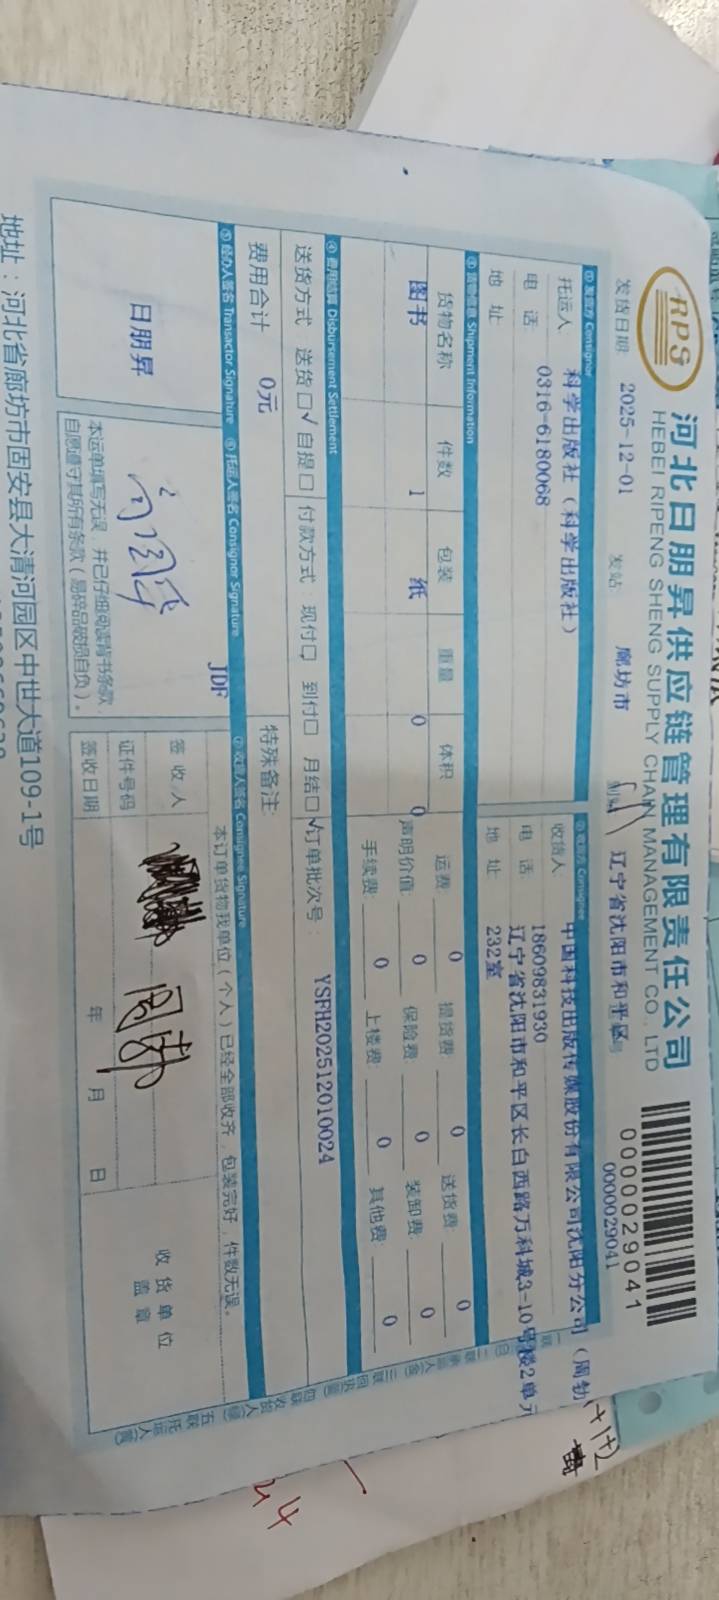 RPS
河北日朋昇供应链管理有限责任公司
HEBEI RIPENG SHENG SUPPLY CHAIN MANAGEMENT CO., LTD
0000029041
0000029041
发货日期: 2025-12-01 发站 廊坊市 到站 辽宁省沈阳市和平区
① 发货方 Consignor
托运人: 科学出版社 (科学出版社)
电 话: 0316-6180068
地 址
② 收货方 Consignee
收货人: 中国科技出版传媒股份有限公司沈阳分公司 (周勃
电 话: 18609831930
地 址 辽宁省沈阳市和平区长白西路万科城3-10号楼2单元
232室
③ 货物信息 Shipment Information
货物名称 件数 包装 重量 体积
图书 1 纸 0 0
运费: 0 提货费: 0 送货费: 0
声明价值: 0 保险费: 0 装卸费: 0
手续费: 0 上楼费: 0 其他费: 0
④ 费用结算 Disbursement Settlement
送货方式 送货□√ 自提□ 付款方式: 现付□ 到付□ 月结□√ 订单批次号: YSFH202512010024
费用合计 0元 特殊备注:
⑤ 经办人签名 Transactor Signature ⑥ 托运人签名 Consignor Signature ⑦ 收货人签名 Consignee Signature
日朋昇
JDF
本运单填写无误,并已仔细阅读背书条款,
自愿遵守其所有条款(易碎品破损自负)。
本订单货物我单位(个人)已经全部收齐,包装完好,件数无误。
签 收 人
证件号码
签收日期 年 月 日
收货单位
盖 章
地址:河北省廊坊市固安县大清河园区中世大道109-1号
24